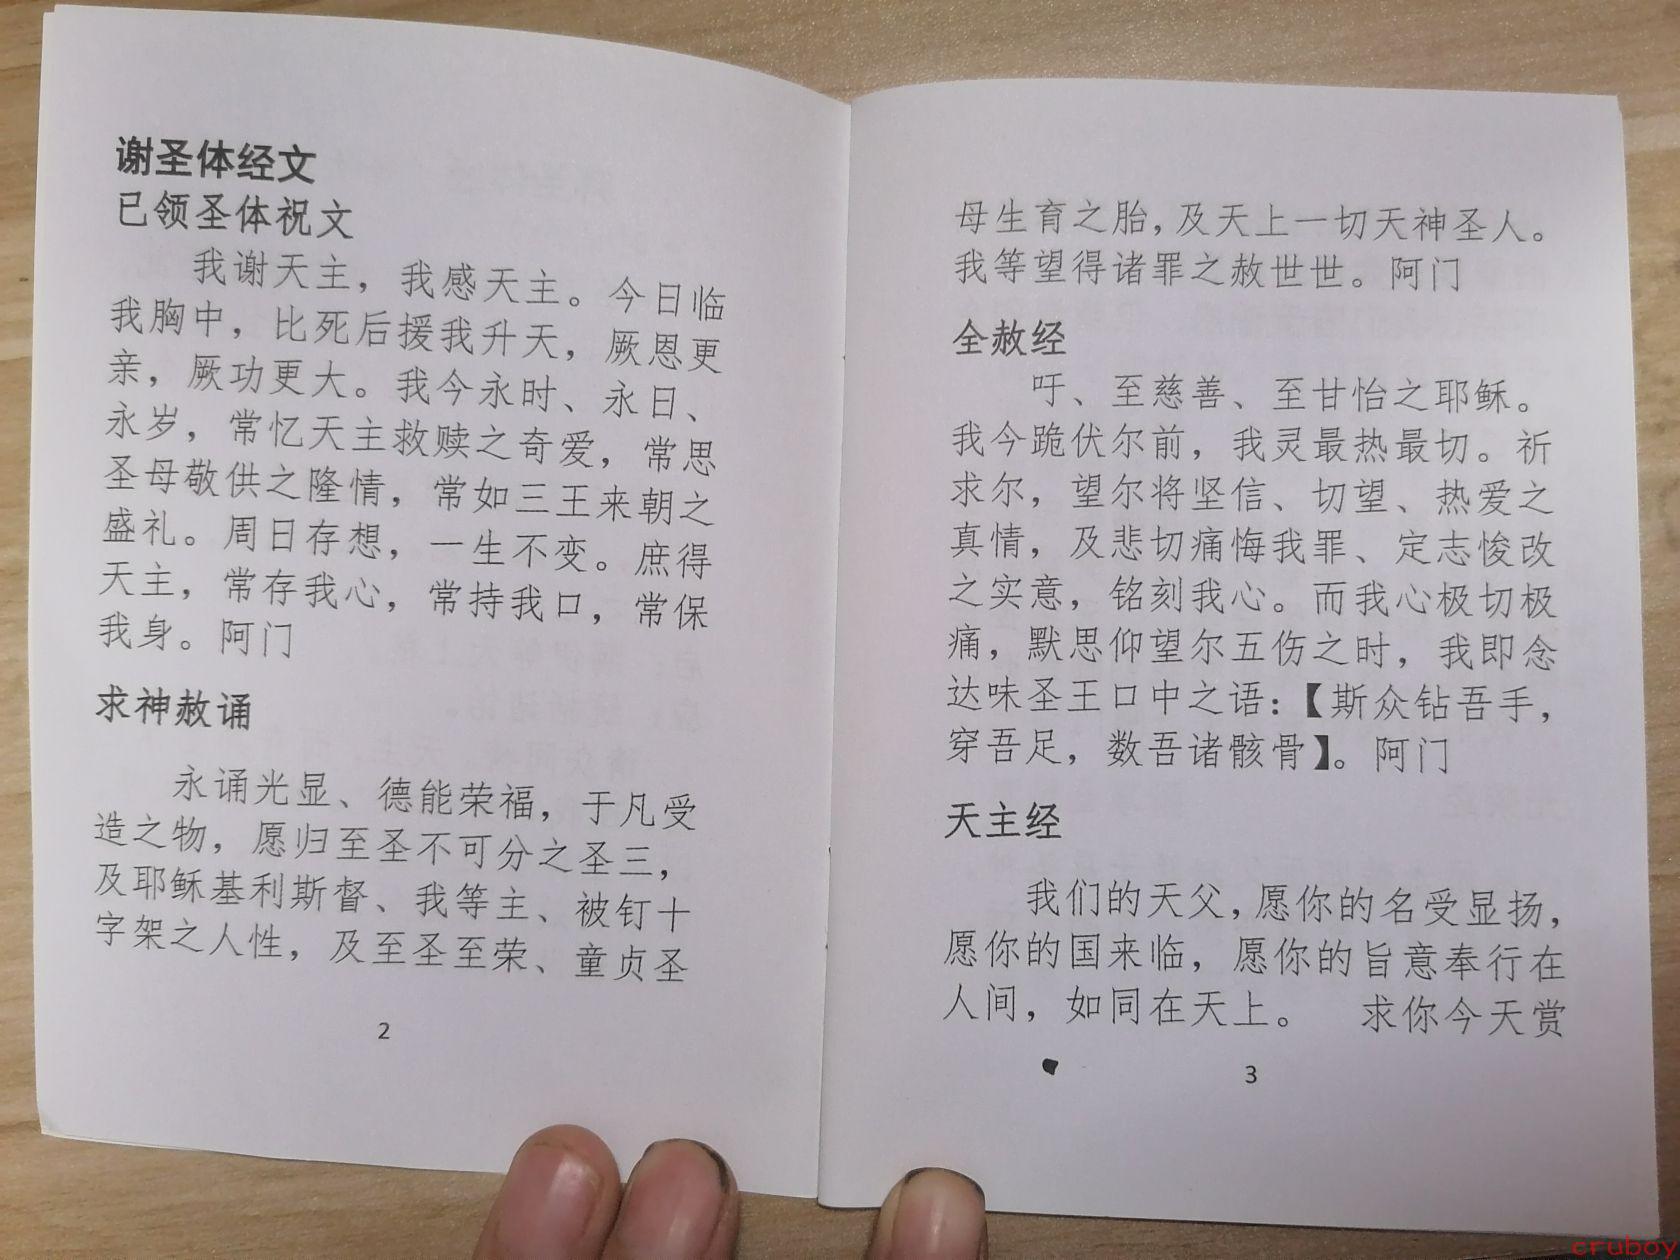 谢圣体经文
已领圣体祝文
我谢天主，我感天主。今日临
我胸中，比死后援我升天，厥恩更
亲，厥功更大。我今永时、永日、
永岁，常忆天主救赎之奇爱，常思
圣母敬供之隆情，常如三王来朝之
盛礼。周日存想，一生不变。庶得
天主，常存我心，常持我口，常保
我身。阿门
求神赦诵
永诵光显、德能荣福，于凡受
造之物，愿归至圣不可分之圣三，
及耶稣基利斯督、我等主、被钉十
字架之人性，及至圣至荣、童贞圣
2
母生育之胎，及天上一切天神圣人。
我等望得诸罪之赦世世。阿门
全赦经
吁、至慈善、至甘怡之耶稣。
我今跪伏尔前，我灵最热最切。祈
求尔，望尔将坚信、切望、热爱之
真情，及悲切痛悔我罪、定志悛改
之实意，铭刻我心。而我心极切极
痛，默思仰望尔五伤之时，我即念
达味圣王口中之语：【斯众钻吾手，
穿吾足，数吾诸骸骨】。阿门
天主经
我们的天父，愿你的名受显扬，
愿你的国来临，愿你的旨意奉行在
人间，如同在天上。 求你今天赏
3
cruboy